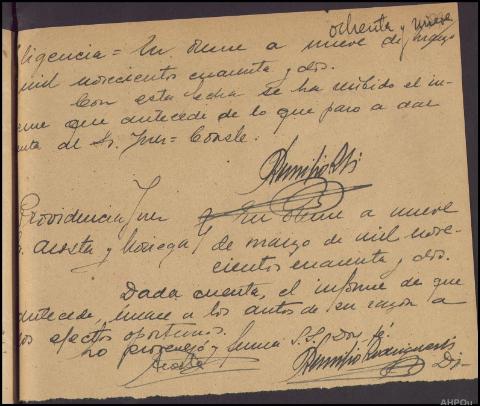 ochenta y nueve
ligencia = En Orense a nueve de marzo
mil novecientos cuarenta y dos.
Con esta fecha se ha recibido el in-
me que antecede de lo que paso a dar
nta al Sr. Juez = Conste.
Providencia Juez
En Orense a nueve
Acosta y Noriega
de marzo de mil nove-
cientos cuarenta y dos.
Dada cuenta, el informe de que
antecede, únase a los autos de su razón a
os efectos oportunos.
Lo proveyó y firma S.S. Doy fé.
Acosta
Di-
AHPOu